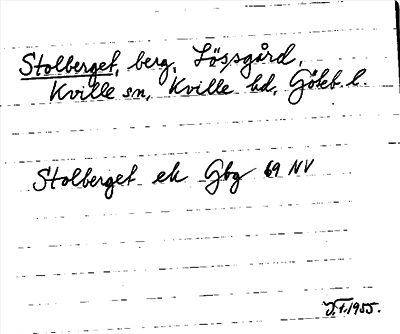 Stolberget, berg, Lössgård,
Kville sn, Kville hd, Göteb. l.
Stolberget ek Gbg 69 NV
1955.